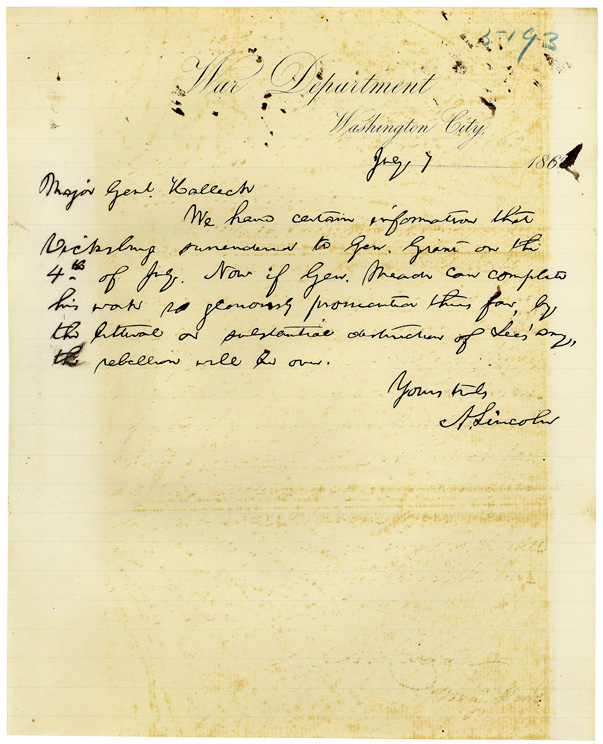 5193
War Department
Washington City,
July 7 1863
Major Genl. Halleck
We have certain information that
Vicksburg surrendered to Gen. Grant on the
4th of July. Now if Gen. Meade can complete
his work so gloriously prosecuted thus far, by
the litteral or substantial destruction of Lee's army,
the rebellion will be over.
Yours truly
A. Lincoln